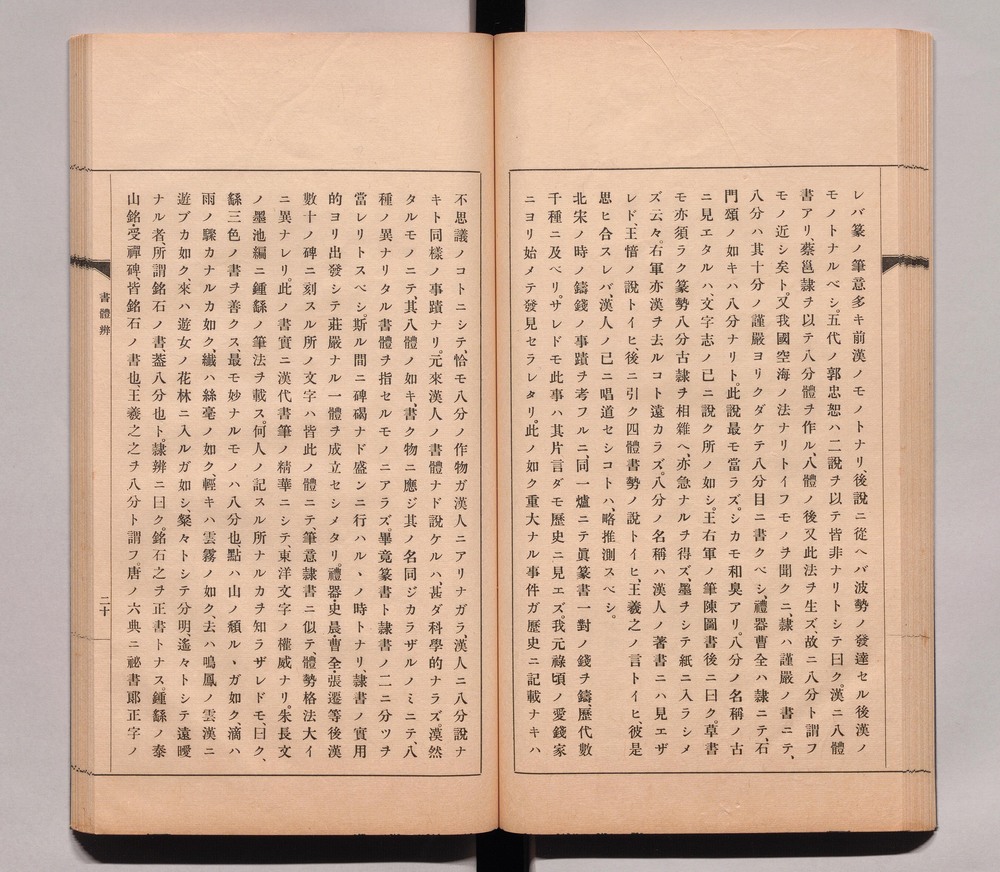 レバ篆ノ筆意多キ前漢ノモノトナリ、後說ニ從ヘバ波勢ノ發達セル後漢ノ
モノトナルベシ。五代ノ郭忠恕ハ二說ヲ以テ皆非ナリトシテ曰ク。漢ニ八體
書アリ、蔡邕隸ヲ以テ八分體ヲ作ル、八體ノ後又此法ヲ生ズ、故ニ八分ト謂フ
モノ近シ矣ト。又我國空海ノ法ナリトイフモノヲ聞クニ、隸ハ謹嚴ノ書ニテ、
八分ハ其十分ノ謹嚴ヨリクダケテ八分目ニ書クベシ、禮器曹全ハ隸ニテ、石
門頌ノ如キハ八分ナリト。此說最モ當ラズ。シカモ和臭アリ。八分ノ名稱ノ古
ニ見エタルハ、文字志ノ已ニ說ク所ノ如シ。王右軍ノ筆陳圖書後ニ曰ク。草書
モ亦須ラク篆勢八分古隸ヲ相雜ヘ、亦急ナルヲ得ズ、墨ヲシテ紙ニ入ラシメ
ズ云々。右軍亦漢ヲ去ルコト遠カラズ。八分ノ名稱ハ漢人ノ著書ニハ見エザ
レド、王愔ノ說トイヒ、後ニ引ク四體書勢ノ說トイヒ、王羲之ノ言トイヒ、彼是
思ヒ合スレバ、漢人ノ已ニ唱道セシコトハ、略推測スベシ。
北宋ノ時ノ鑄錢ノ事蹟ヲ考フルニ、同一爐ニテ眞篆書一對ノ錢ヲ鑄、歷代數
千種ニ及ベリ。サレドモ此事ハ其片言ダモ歷史ニ見エズ。我元祿頃ノ愛錢家
ニヨリ始メテ發見セラレタリ。此ノ如ク重大ナル事件ガ歷史ニ記載ナキハ
不思議ノコトニシテ、恰モ八分ノ作物ガ漢人ニアリナガラ、漢人ニ八分說ナ
キト同樣ノ事蹟ナリ。元來漢人ノ書體ナド說ケルハ、甚ダ科學的ナラズ。漠然
タルモノニテ、其八體ノ如キ、書ク物ニ應ジ其ノ名同ジカラザルノミニテ、八
種ノ異ナリタル書體ヲ指セルモノニアラズ。畢竟篆書ト隸書ノ二ニ分ツヲ
當レリトスベシ。斯ル間ニ碑碣ナド盛ンニ行ハルヽノ時トナリ、隸書ノ實用
的ヨリ出發シテ莊嚴ナル一體ヲ成立セシメタリ。禮器・史晨・曹全・張遷等後漢
數十ノ碑ニ刻スル所ノ文字ハ皆此ノ體ニテ、筆意隸書ニ似テ、體勢格法大イ
ニ異ナレリ。此ノ書實ニ漢代書筆ノ精華ニシテ、東洋文字ノ權威ナリ。朱長文
ノ墨池編ニ鍾繇ノ筆法ヲ載ス。何人ノ記スル所ナルカヲ知ラザレドモ、曰ク、
繇三色ノ書ヲ善クス、最モ妙ナルモノハ八分也、點ハ山ノ頽ルヽガ如ク、滴ハ
雨ノ驟カナルカ如ク、纖ハ絲毫ノ如ク、輕キハ雲霧ノ如ク、去ハ鳴鳳ノ雲漢ニ
遊ブカ如ク來ハ遊女ノ花林ニ入ルガ如シ、粲々トシテ分明、遙々トシテ遠曖
ナル者、所謂銘石ノ書、葢八分也ト。隸辨ニ曰ク。銘石之ヲ正書トナス。鍾繇ノ泰
山銘・受禪碑、皆銘石ノ書也、王羲之之ヲ八分ト謂フ。唐ノ六典ニ祕書郞正字ノ
書體辨
二十